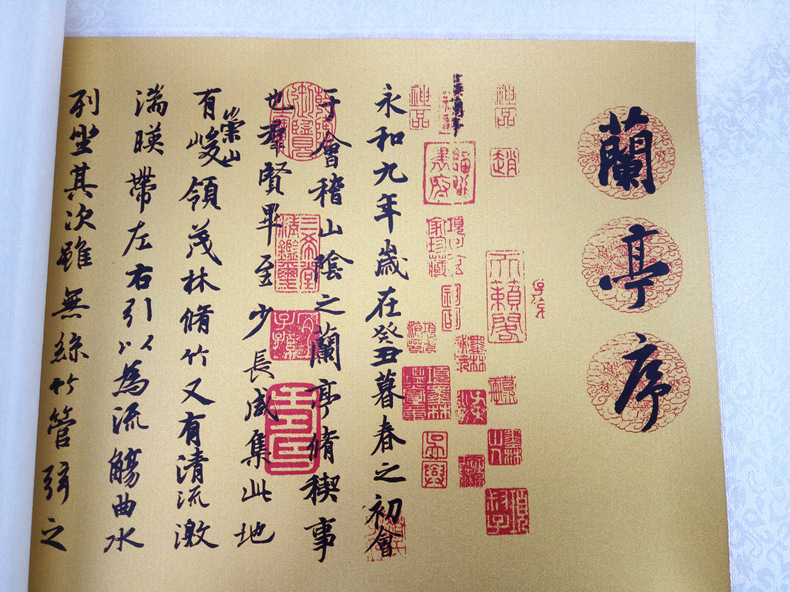 蘭亭序
神品
趙
天籟閣
神品
永和九年歲在癸丑暮春之初會
于會稽山陰之蘭亭脩稧事
三希堂精鑑璽
宜子孫
也羣賢畢至少長咸集此地
有崇山峻領茂林脩竹又有清流激
湍暎帶左右引以為流觴曲水
列坐其次雖無絲竹管弦之